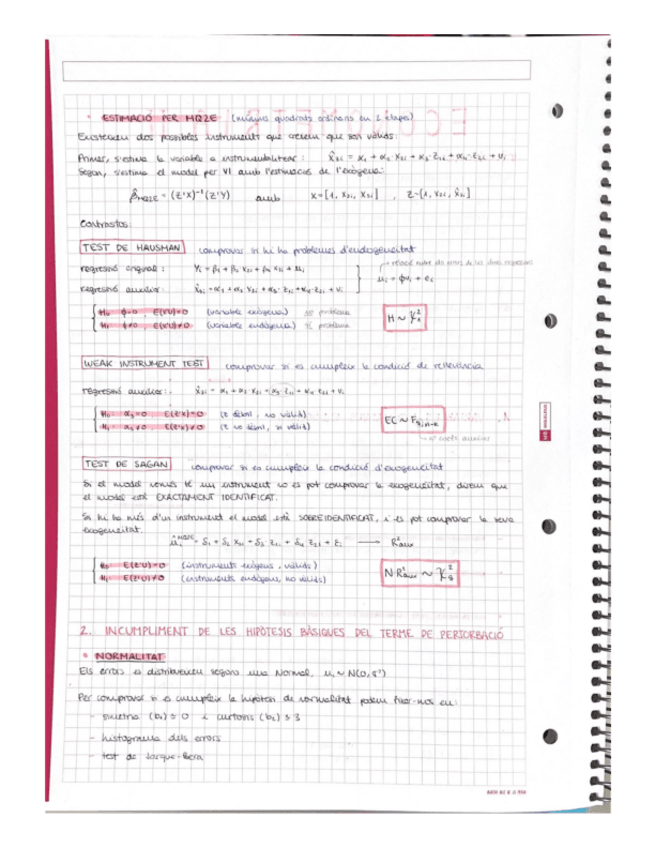 • ESTIMACIÓ PER MQ2E (mínims quadrats ordinaris en 2 etapes)
Existeixen dos possibles instruments que creiem que són vàlids.
Primer, s'estima la variable a instrumentalitzar: X̂3i = α1 + α2 X2i + α3 Z1i + α4 Z2i + Vi
Segon, s'estima el model per VI amb l'estimació de l'exògena:
β̂MQ2E = (Z'X)⁻¹(Z'Y) amb X=[1, X2i, X3i], Z=[1, X2i, X̂3i]
Contrastos:
TEST DE HAUSMAN comprovar si hi ha problemes d'endogeneïtat
→ relació entre els errors de les dues regressions
regressió original: Yi = β1 + β2 X2i + β3 X3i + ui
ui = φvi + ei
regressió auxiliar: X̂3i = α1 + α2 X2i + α3 Z1i + α4 Z2i + Vi
H0 φ=0 E(X'U)=0 (variable exògena) no problema
H1 φ≠0 E(X'U)≠0 (variable endògena) sí problema
H ~ χ²1
WEAK INSTRUMENT TEST comprovar si es compleix la condició de rellevància
regressió auxiliar: X̂3i = α1 + α2 X2i + α3 Z1i + α4 Z2i + Vi
H0 α3=0 E(Z'X)=0 (Z dèbil, no vàlid)
H1 α3≠0 E(Z'X)≠0 (Z no dèbil, sí vàlid)
EC ~ Fq;n-k
TEST DE SAGAN comprovar si es compleix la condició d'exogeneïtat
Si el model només té un instrument no es pot comprovar la exogeneïtat, diem que
el model està EXACTAMENT IDENTIFICAT.
Si hi ha més d'un instrument el model està SOBREIDENTIFICAT, i es pot comprovar la seva
exogeneïtat.
ûiMQ2E = δ1 + δ2 X2i + δ3 Z1i + δ4 Z2i + Ei → R²aux
H0 E(Z'U)=0 (instruments exògens, vàlids)
H1 E(Z'U)≠0 (instruments endògens, no vàlids)
N·R²aux ~ χ²q
2. INCUMPLIMENT DE LES HIPÒTESIS BÀSIQUES DEL TERME DE PERTORBACIÓ
• NORMALITAT
Els errors es distribueixen segons una Normal, ui ~ N(0, δ²)
Per comprovar si es compleix la hipòtesi de normalitat podem fixar-nos en:
- simetria (b1) ≈ 0 i curtosis (b2) ≈ 3
- histograma dels errors
- test de Jarque-Bera